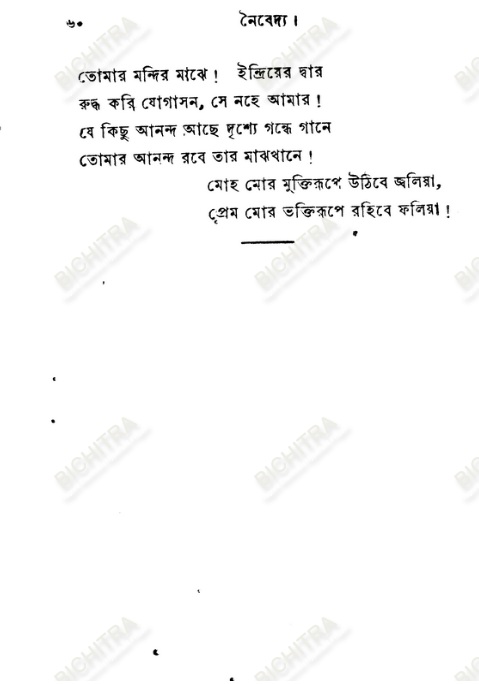 ৬০ নৈবেদ্য।
তোমার মন্দির মাঝে! ইন্দ্রিয়ের দ্বার
রুদ্ধ করি যোগাসন, সে নহে আমার!
যে কিছু আনন্দ আছে দৃশ্যে গন্ধে গানে
তোমার আনন্দ রবে তার মাঝখানে!
মোহ মোর মুক্তিরূপে উঠিবে জ্বলিয়া,
প্রেম মোর ভক্তিরূপে রহিবে ফলিয়া!
BICHITRA
BICHITRA
BICHITRA
BICHITRA
BICHITRA
BICHITRA
BICHITRA
BICHITRA
BICHITRA
BICHITRA
BICHITRA
BICHITRA